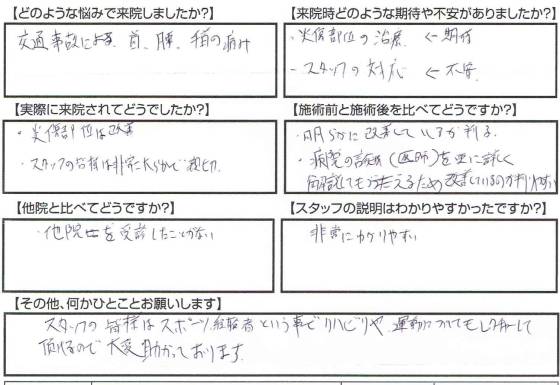 【どのような悩みで来院しましたか?】
交通事故による、首、腰、指の痛み
【来院時どのような期待や不安がありましたか?】
・炎傷部位の治療 ← 期待
・スタッフの対応 ← 不安
【実際に来院されてどうでしたか?】
・炎傷部位は改善
・スタッフの皆様は非常に大らかで親切
【施術前と施術後を比べてどうですか?】
・明らかに改善しているが判る。
・病院の説明(医師)を更に詳しく
解説してもらえるため改善しているのが判りやすい
【他院と比べてどうですか?】
・他院を受診したことがない
【スタッフの説明はわかりやすかったですか?】
非常にわかりやすい
【その他、何かひとことお願いします】
スタッフの皆様はスポーツ経験者という事でリハビリや、運動についてもレクチャーして
頂けるので大変助かっております。